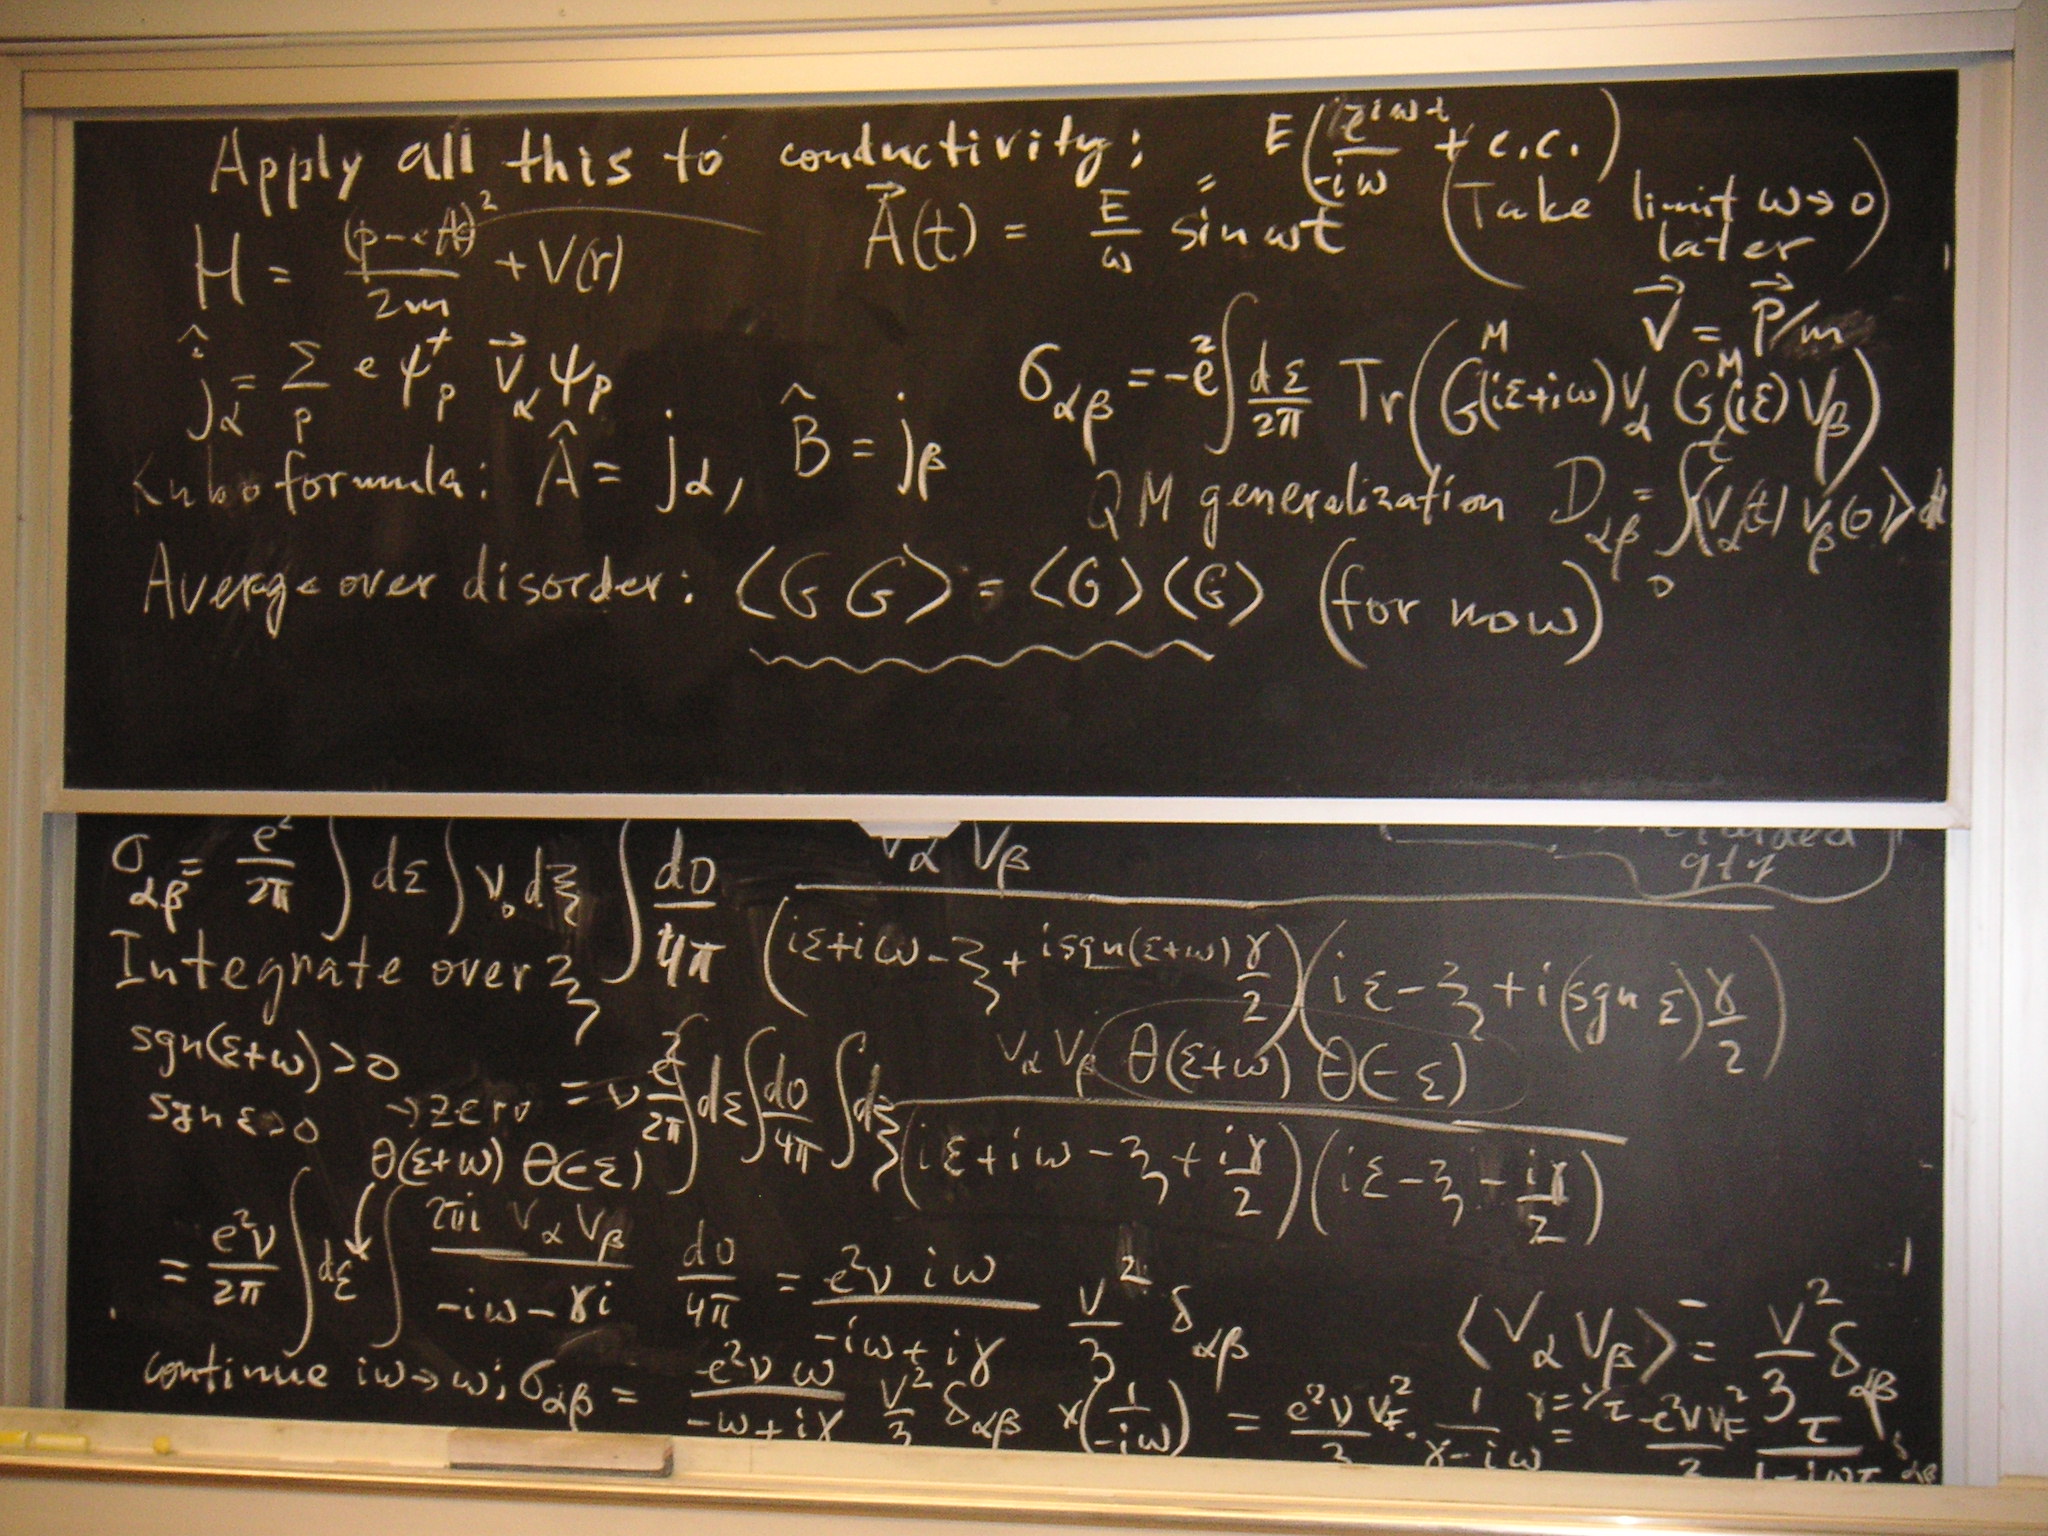 Apply all this to conductivity:
E(e^{iωt}/-iω + c.c.)
H = (p-eA)²/2m + V(r)
A⃗(t) = E/ω sin ωt
(Take limit ω→0 later)
ĵ_α = Σ_p e ψ_p^+ v⃗_α ψ_p
v⃗ = p⃗/m
σ_{αβ} = -e² ∫ dε/2π Tr(G^M(iε+iω) v_α G^M(iε) v_β)
Kubo formula: Â = j_α, B̂ = j_β
QM generalization D_{αβ} = ∫_0^t ⟨v_α(t) v_β(0)⟩ dt
Average over disorder: ⟨G G⟩ = ⟨G⟩⟨G⟩ (for now)
qty
σ_{αβ} = e²/2π ∫ dε ∫ ν_0 dξ ∫ do/4π v_α v_β / (iε+iω-ξ+i sgn(ε+ω) γ/2)(iε-ξ+i(sgn ε) γ/2)
Integrate over ξ
sgn(ε+ω)>0
sgn ε>0 → zero
= ν e²/2π ∫ dε ∫ do/4π ∫ dξ v_α v_β θ(ε+ω) θ(-ε) / (iε+iω-ξ+iγ/2)(iε-ξ-iγ/2)
θ(ε+ω) θ(-ε)
= e²ν/2π ∫ dε ∫ 2πi v_α v_β / -iω-γi do/4π = e²ν iω / -iω+iγ v²/3 δ_{αβ}
⟨v_α v_β⟩ = v²/3 δ_{αβ}
continue iω→ω; σ_{αβ} = e²ν ω / -ω+iγ v²/3 δ_{αβ} ×(1/-iω) = e²ν v_F²/3 · 1/γ-iω γ=1/τ = e²ν v_F²/3 τ/1-iωτ δ_{αβ}